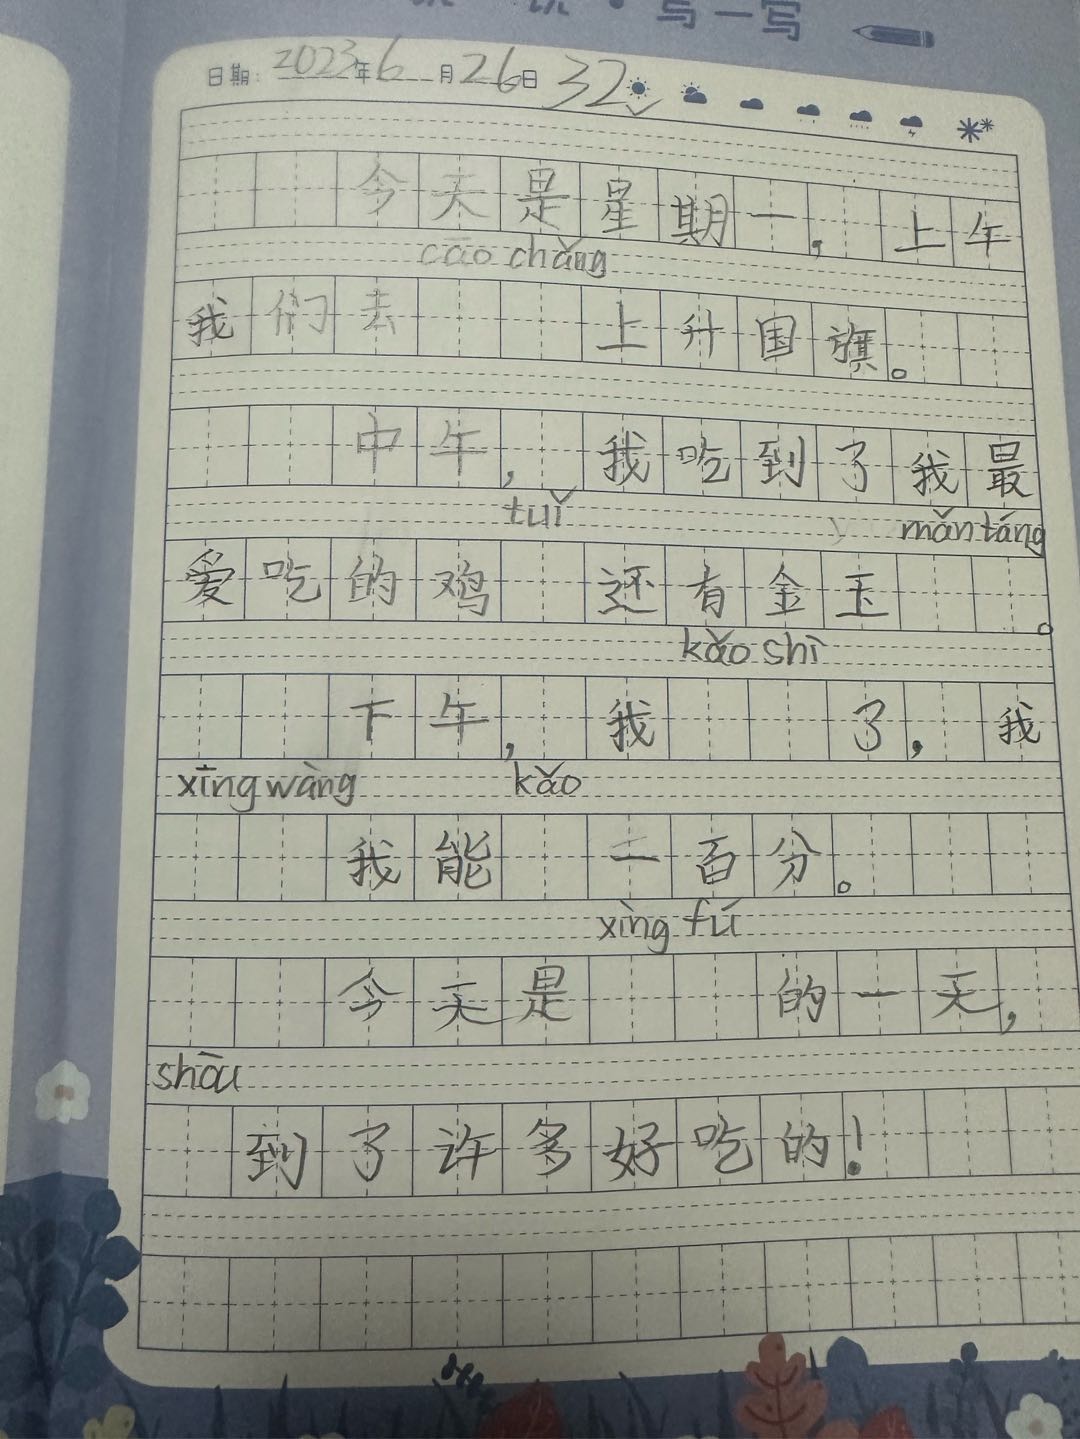 写一写
日期: 2023年6月26日 32
今天是星期一,上午
cāo chǎng
我们去 上升国旗。
中午,我吃到了我最
tuǐ mǎn táng
爱吃的鸡 还有金玉 。
kǎo shì
下午,我 了,我
xīng wàng kǎo
我能 一百分。
xìng fú
今天是 的一天,
shōu
到了许多好吃的!